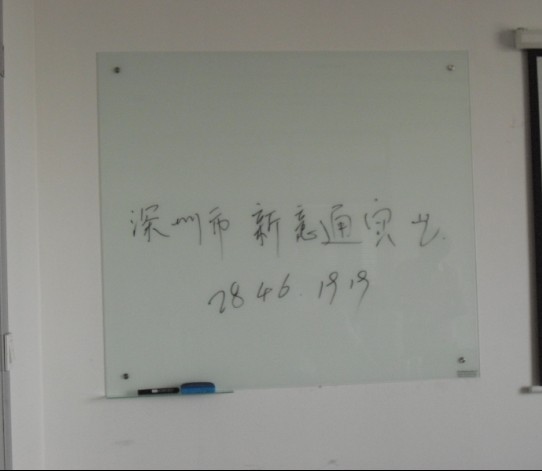 深圳市新意通实业
2846.1919